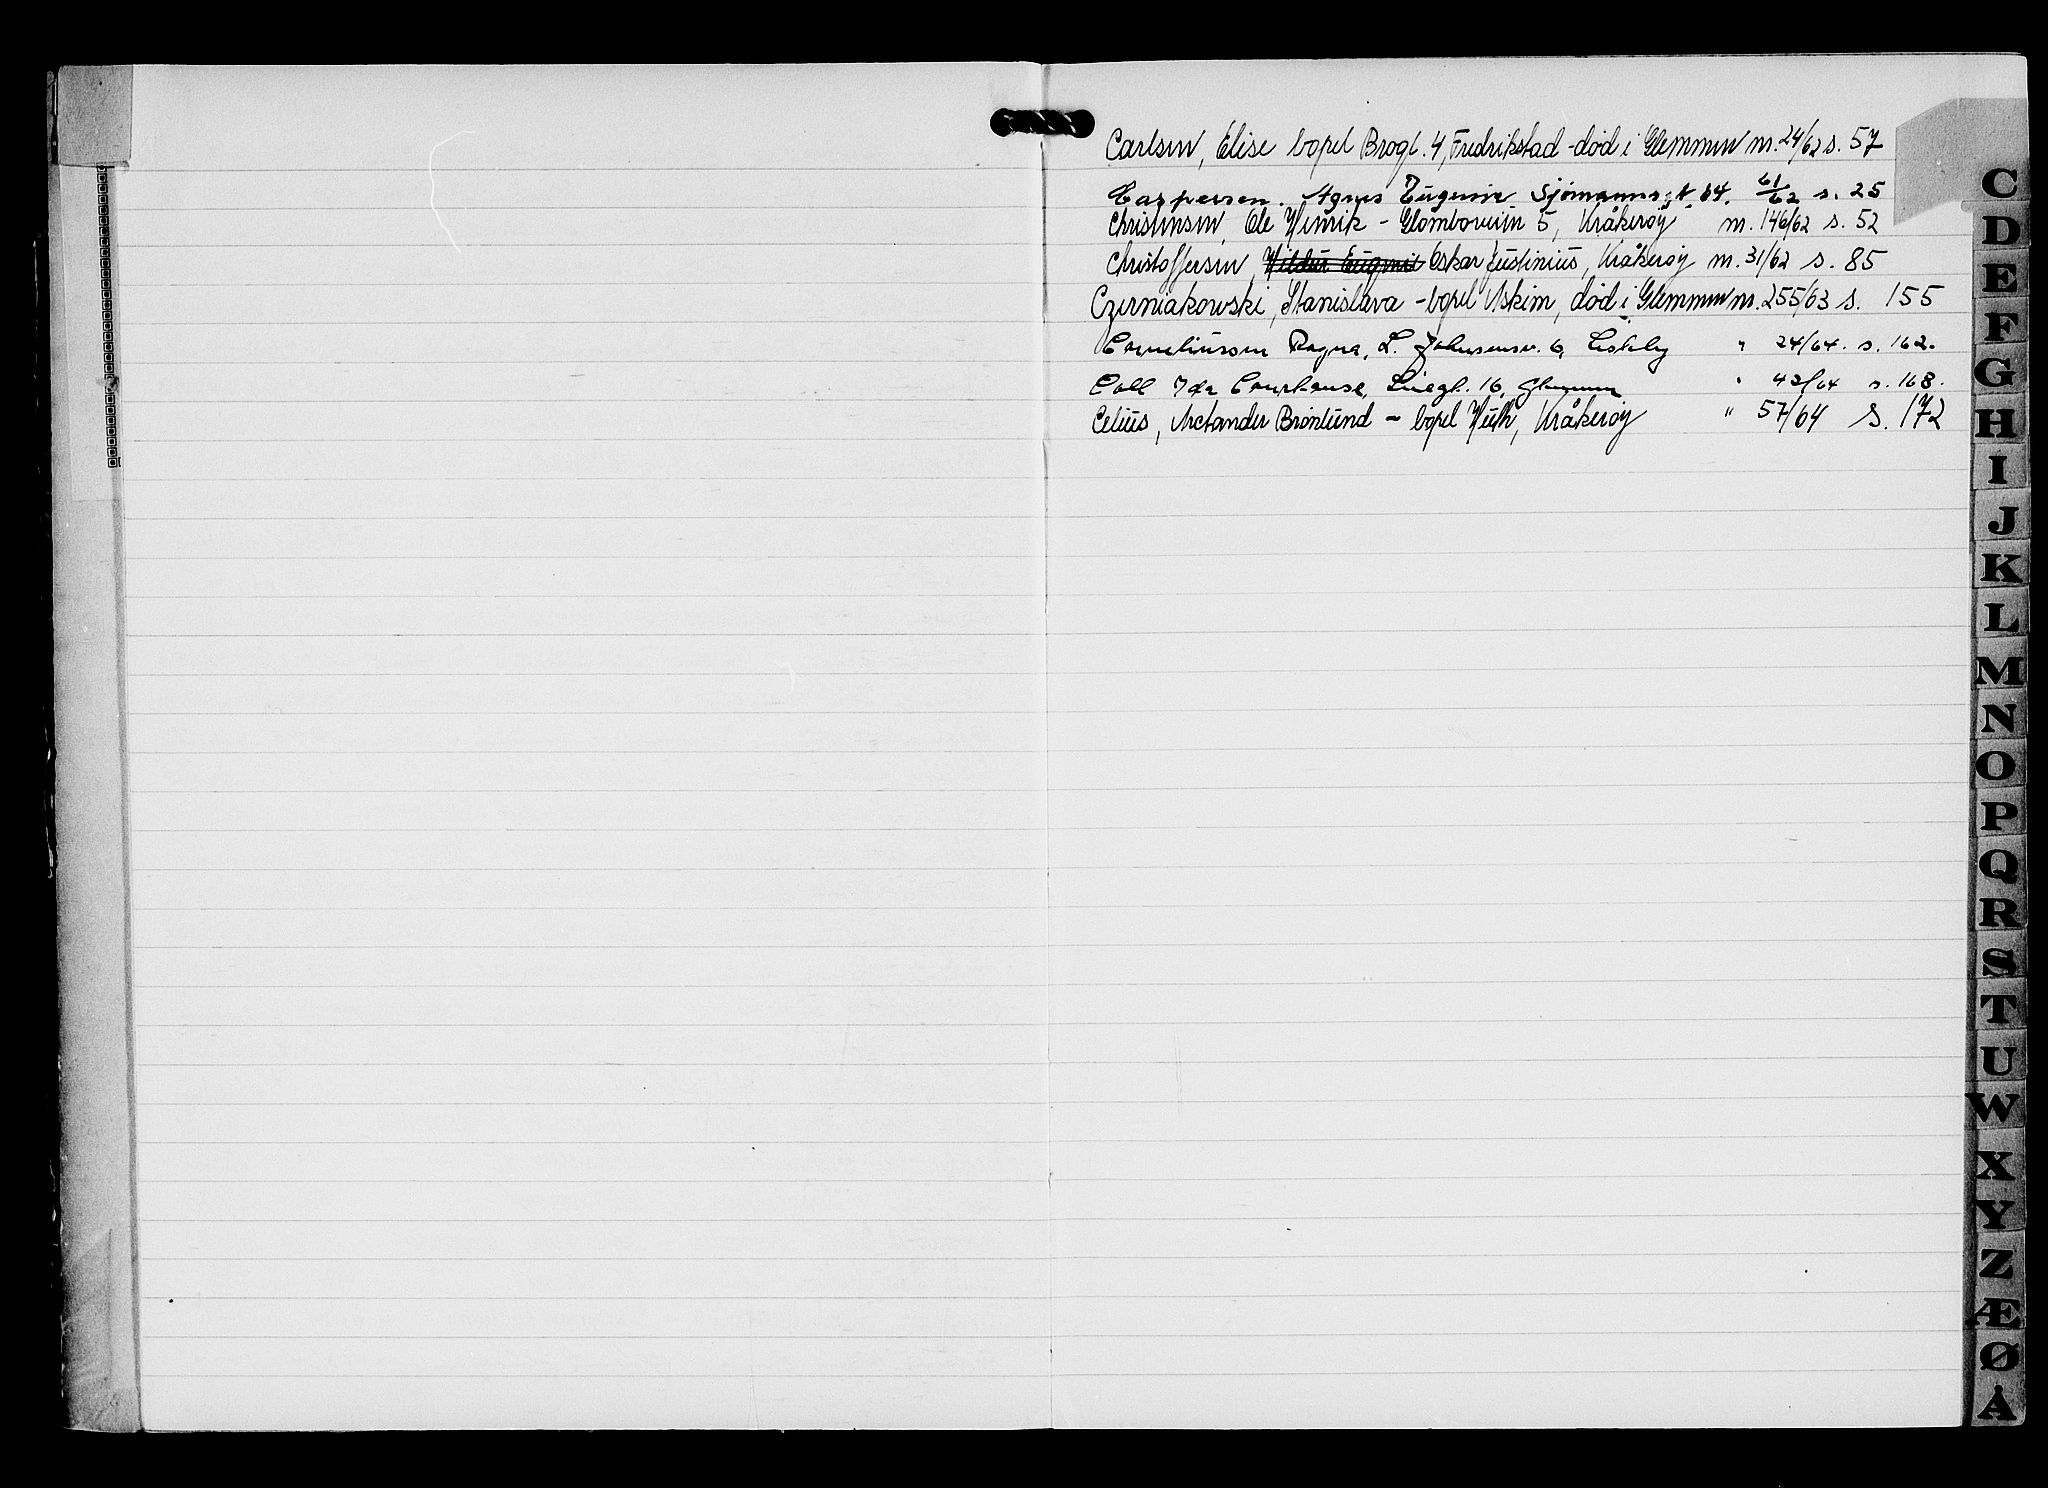 Carlsen, Elise bopel Brogt. 4, Fredrikstad - død i Glemmen nr. 24/62 s. 57
Caspersen. Agnes Eugenie Sjømannsgt. 64. 61/62 s. 25
Christensen, Ole Henrik - Glomboveien 5, Kråkerøy nr. 146/62 s. 52
Christoffersen, Hildur Eugenie Oskar Justinius, Kråkerøy nr. 31/62 s. 85
Czerniakowski, Stanislava - bopel Askim, død i Glemmen nr. 255/63 s. 155
Corneliussen Ragna, L. Johnsensv. 6, Lisleby " 24/64. s. 162.
Coll Ida Lingt. 16, Glemmen " 42/64 s. 168.
Celius, Arctander Brønlund - bopel Huth, Kråkerøy " 57/64 s. 172
C
D
E
F
G
H
I
J
K
L
M
N
O
P
Q
R
S
T
U
W
X
Y
Z
Æ
Ø
Å